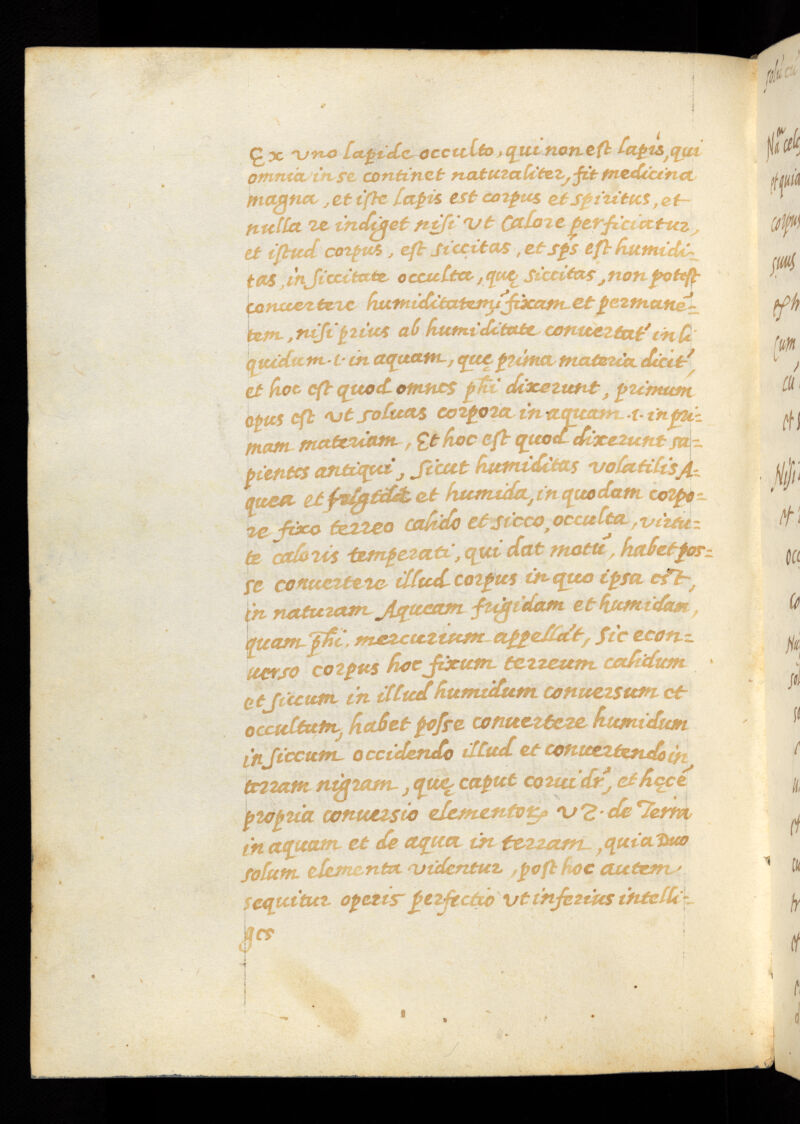 Ex uno lapide occulto, qui non est lapis, qui
omnia in se continet naturaliter, fit medicina
magna, et iste lapis est corpus et spiritus, et
nulla re indiget nisi ut Calore perficiatur,
et istud corpus, est siccitas, et sp̃s est humidi-
tas, in siccitate occulta, quę siccitas, non potest
conuertere humiditatem, fixam et permanẽ-
tem, nisi prius ab humiditate conuertat' in li
quidum .i. in aquam, quę prima materia dicit',
et hoc est quod omnes pħi dixerunt, primum
opus est ut soluas corpora in aquam .i. in pri-
mam materiam, Et hoc est quod dixerunt sa-
pientes antiqui, sicut humiditas volatilis A-
quea et frigida et humida, in quodam corpo-
re fixo terreo calido et sicco, occulta, virtu-
te caloris temperati, qui dat motũ, habet pos-
se conuertere illud corpus in quo ipsa est,
in naturam Aqueam frigidam et humidam,
quam pħi mercurium appellãt, sic econ-
uerso corpus hoc fixum terreum calidum
et siccum in illud humidum conuersum et
occultum, habet posse conuertere humidum
in siccum occidendo illud et conuertendo in
terram nigram, quę caput corui dr̃, et hęc ẽ
propria conuersio elementoꝝ vz. de Terra
in aquam et de aqua in terram, quia Duo
solum elementa videntur, post hoc autem
sequitur operis perfectio ut inferius intelli-
ges
solũ cũ
Nam
et quia
corpus
suus
Cum
cũ
et
Nisi
et